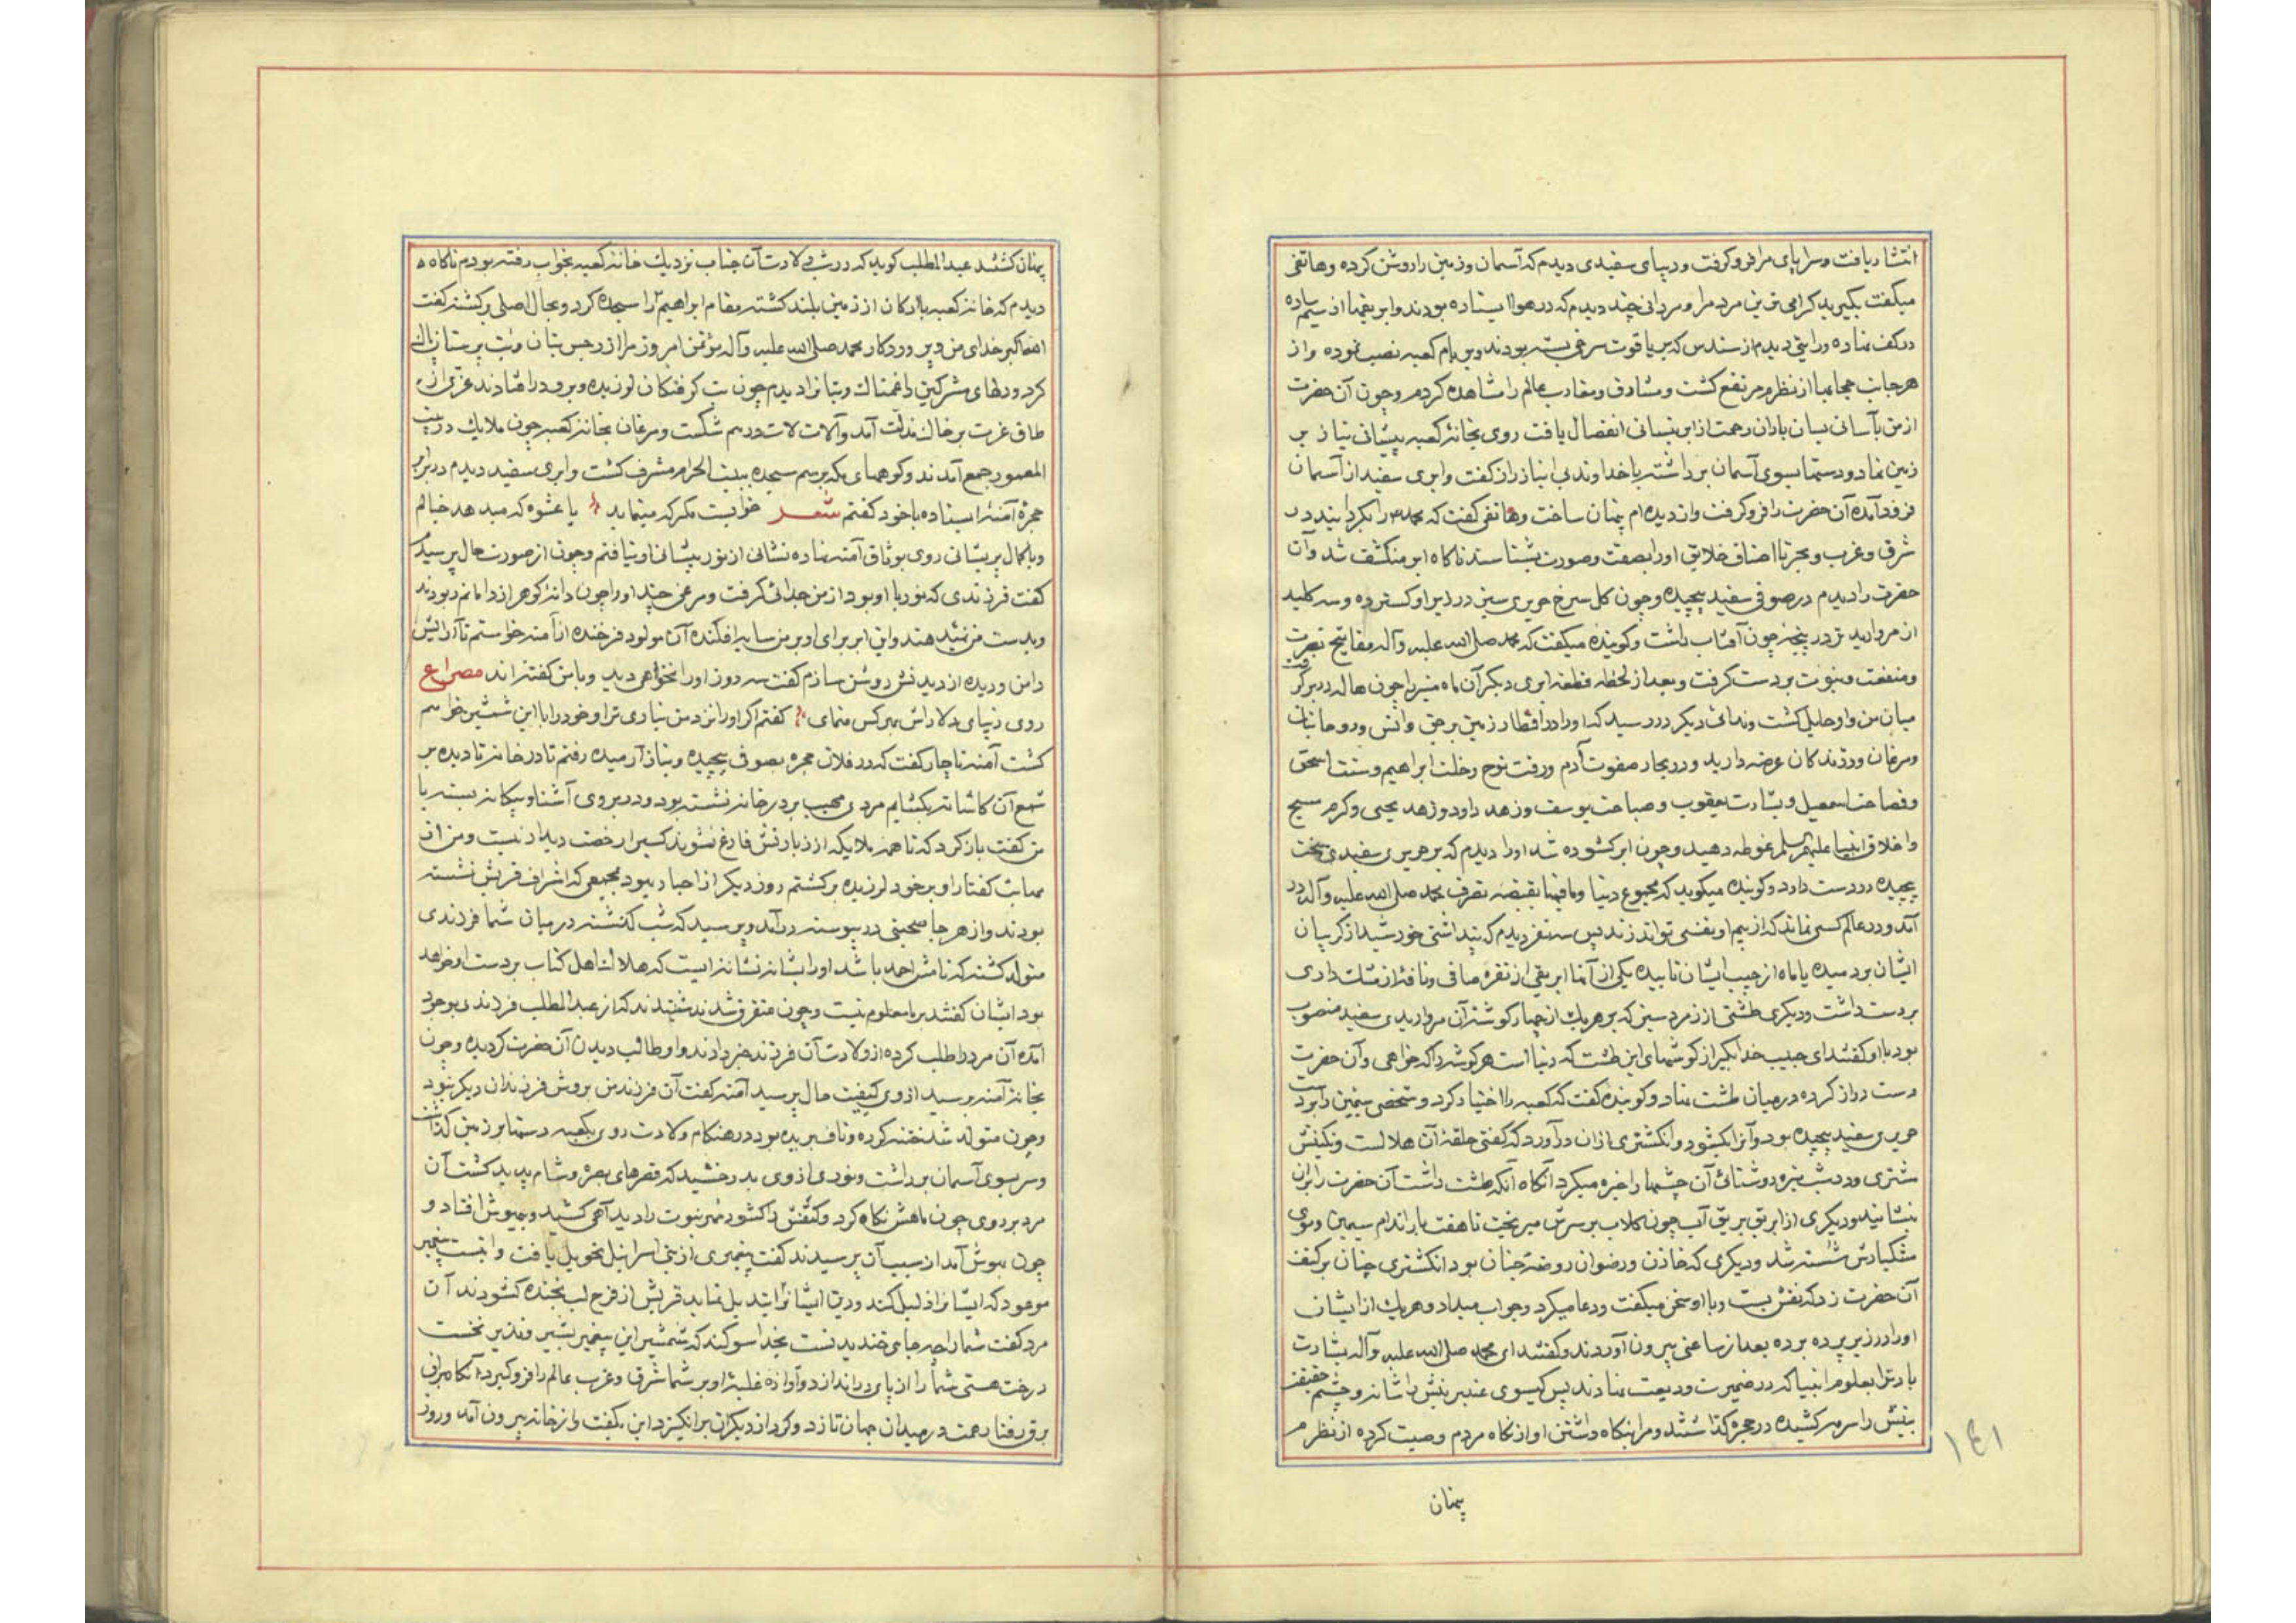 انتشار یافت وسراپای مرا فروکرفت ودیبای سفیدی دیدم که آسمان وزمین را روشن کرده وهاتفی
میکفت بکیرید کرامی ترین مردم را ومردانی چند دیدم که در هوا ایستاده بودند وابریقها از سیم ساده
در کف نهاده ورایتی دیدم از سندس که بر یاقوت سرخی بسته بودند وبر بام کعبه نصب نموده واز
هر جانب حجابها از نظرم مرتفع کشت ومشارق ومغارب عالم را مشاهده کردم وچون آن حضرت
از من بآسانی بسان باران رحمت از ابر نیسانی انفصال یافت روی بخانهٔ کعبه پیشانی نیاز بر
زمین نهاد ودستها بسوی آسمان برداشته با خداوند بی انباز راز کفت وابری سفید از آسمان
فرود آمده آن حضرت را فروکرفت واز دیده ام پنهان ساخت وهاتفی کفت که محمد را بکردانید در
شرق وغرب وبحر تا اصناف خلایق اورا بصفت وصورت بشناسند ناکاه ابر منکشف شد وآن
حضرت را دیدم در صوفی سفید پیچیده وچون کل سرخ حریری سبز در زیر او کسترده وسه کلید
از مروارید تر در پنجهٔ چون آفتاب داشت وکوینده میکفت که محمد صلی الله علیه وآله مفاتیح نصرت
ومنفعت ونبوت بر دست کرفت وبعد از لحظه قطعه ابری دیکر آن ماه منیر را چون هاله در بر کرفت
میان من واو حایل کشت وندائی دیکر در رسید که اورا در اقطار زمین بر جن وانس وروحانیان
ومرغان ودرندکان عرضه دارید ودر بحار صفوت آدم ورقت نوح وخلت ابراهیم وسنت اسحق
وفصاحت اسمعیل وبشارت یعقوب وصباحت یوسف وزهد داود وزهد یحیی وکرم مسیح
واخلاق انبیا علیهم السلم غوطه دهید وچون ابر کشوده شد اورا دیدم که بر حریری سفیدی سخت
پیچیده در دست دارد وکوینده میکوید که مجموع دنیا وما فیها بقبضه تصرف محمد صلی الله علیه وآله در
آمد ودر عالم کسی نماند که از بیم او نفسی تواند زند پس سه نفر دیدم که پنداشتی خورشید از کریبان
ایشان بر دمیده یا ماه از جیب ایشان تابیده یکی از آنها ابریقی از نقره صافی ونافهٔ از مشک داری
بر دست داشت ودیکری طشتی از زمرد سبز که بر هر یک از چهار کوشهٔ آن مرواریدی سفید منصوب
بود با او کفتند ای حبیب خدا بکیر از کوشهای این طشت که دنیا است هر کوشه را که خواهی وآن حضرت
دست دراز کرده در میان طشت نهاد وکوینده کفت که کعبه را اختیار کرد وشخص سیمین را بر دست
حریری سفید پیچیده بود وآنرا بکشود وانکشتری از ان در آورد که کفتی حلقهٔ آن هلالست ونکینش
مشتری ودر شب تیره روشنائی آن چشمها را خیره میکرد آنکاه آنکه طشت داشت آن حضرت را بران
نشانید ودیکری از ابریق بر یق آب چون کلاب بر سرش میریخت تا هفت بار اندام سیمین وموی
مشکبارش شسته شد ودیکری که خازن ورضوان روضهٔ جنان بود انکشتری چنان بر کتف
آن حضرت زد که نقش بست وبا او سخن میکفت ودعا میکرد وجواب میداد وهر یک از ایشان
اورا در زیر پرده برده بعد از ساعتی بیرون آوردند وکفتند ای محمد صلی الله علیه وآله بشارت
باد ترا بعلوم انبیا که در ضمیرت ودیعت نهادند پس کیسوی عنبرینش را شانه وچشم حقیقت
بینش را سرمه کشیده در حجره کذاشتند ومرا بنکاه داشتن او از نکاه مردم وصیت کرده از نظرم
پنهان
۱٤۱
پنهان کشتند عبد المطلب کوید که در شب ولادت آن جناب نزدیک خانهٔ کعبه بخواب رفته بودم ناکاه
دیدم که خانهٔ کعبه با ارکان از زمین بلند کشته مقام ابراهیم را سجده کرد وبحال اصلی برکشته کفت
الله اکبر خدای من وپروردکار محمد صلی الله علیه وآله مؤتمن امروز مرا از رجس بتان وبت پرستان پاک
کرد ودلهای مشرکین را غمناک وبتانرا دیدم چون تب کرفتکان لرزیده وبرو در افتادند عزی از
طاق عزت بر خاک مذلت آمد وآلات لات درهم شکست ومرغان بخانهٔ کعبه چون ملایک در بیت
المعمور جمع آمدند وکوههای مکه برسم سجده ببیت الحرام مشرف کشت وابری سفید دیدم در برابر
حجرهٔ آمنه ایستاده با خود کفتم شعر خوابیست مکر که مینماید یا عشوه که میدهد خیالم
وبا کمال پریشانی روی بوثاق آمنه نهاده نشانی از نور پیشانی او نیافتم وچون از صورت حال پرسیدم
کفت فرزندی که نور با او بود از من جدائی کرفت ومرغی چند اورا چون دانهٔ کوهر از دامانم ربودند
وبدست من نمیدهند واین ابر برای او بر من سایه افکنده آن مولود فرخنده از آمنه خواستم تا آرایش
دامن ودیده از دیدنش روشن سازم کفت سه روز اورا نخواهی دید وبا من کفته اند مصراع
روی زیبای دلاراش بهر کس منمای کفتم اکر اورا نزد من نیاری ترا وخود را با این شمشیر خواهم
کشت آمنه ناچار کفت که در فلان حجره بصوف پیچیده وبناز آرمیده رفتم تا در خانه تا دیده بر
شمع آن کاشانه بکشایم مردی مهیب بر در خانه نشسته بود ودر بروی آشنا وبیکانه بسته با
من کفت باز کرد که تا همه ملایکه از زیارتش فارغ نشوند کسیرا رخصت دیدار نیست ومن از
مهابت کفتار او بر خود لرزیده برکشتم روز دیکر از احبار یهود بمجمعی که اشراف قریش نشسته
بودند واز هر جا صحبتی در پیوسته در آمد وپرسید که شب کذشته در میان شما فرزندی
متولد کشته که نامش احمد باشد اورا بشانه نشانه ایست که هلاک اهل کتاب بر دست او خواهد
بود ایشان کفتند بر ما معلوم نیست وچون متفرق شدند شنیدند که از عبد المطلب فرزندی بوجود
آمده آن مرد را طلب کرده از ولادت آن فرزند خبر دادند واو طالب دیدن آن حضرت کردیده وچون
بخانهٔ آمنه برسید از وی کیفیت حال پرسید آمنه کفت آن فرزند من بروش فرزندان دیکر نبود
وچون متولد شد ختنه کرده وناف بریده بود در هنکام ولادت روی بکعبه دستها بر زمین کذاشت
وسر بسوی آسمان برداشت ونوری از وی بدرخشید که قصرهای بصره وشام پدید کشت آن
مرد بر روی چون ماهش نکاه کرد وکتفش را کشود مهر نبوت را دید آهی کشید وبیهوش افتاد و
چون بهوش آمد از سبب آن پرسیدند کفت پیغمبری از بنی اسرائیل تحویل یافت واینست پیغمبر
موعود که ایشانرا ذلیل کند ودین ایشانرا تبدیل نماید قریش از فرح لب بخنده کشودند آن
مرد کفت شما را چه جای خندیدنست بخدا سوکند که شمشیر این پیغمبر بشیر ونذیر نخست
درخت هستی شما را از پای در اندازد وآوازه غلبهٔ او بر شما شرق وغرب عالم را فروکیرد آنکاه براق
برق رفتار همت در میدان جهان تازد وکرد از دیکران برانکیزد این بکفت واز خانه بیرون آمد وروز